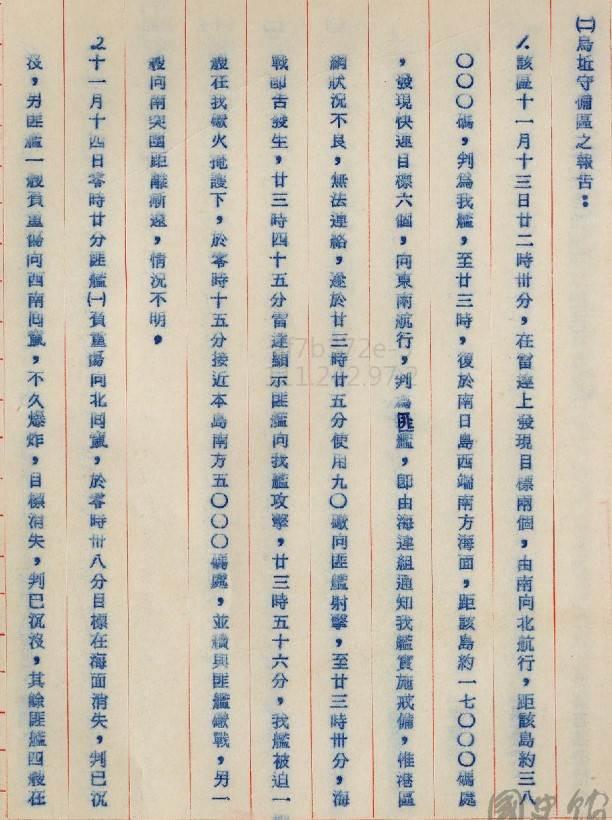 ㈡烏坵守備區之報告：
1.該區十一月十三日廿二時卅分，在雷達上發現目標兩個，由南向北航行，距該島約三八
〇〇〇碼，判為我艦，至廿三時，復於南日島西端南方海面，距該島約一七〇〇〇碼處
，發現快速目標六個，向東南航行，判為匪艦，即由海連組通知我艦實施戒備，惟港區
網狀況不良，無法連絡，遂於廿三時廿五分使用九〇礮向匪艦射擊，至廿三時卅分，海
戰即告發生，廿三時四十五分雷達顯示匪艦向我艦攻擊，廿三時五十六分，我艦被迫一
艘在我礮火掩護下，於零時十五分接近本島南方五〇〇〇碼處，並續與匪艦礮戰，另一
艘向南突圍距離漸遠，情況不明。
2.十一月十四日零時廿分匪艦㈠負重傷向北回竄，於零時卅八分目標在海面消失，判已沉
沒，另匪艦一艘負重傷向西南回竄，不久爆炸，目標消失，判已沉沒，其餘匪艦四艘在
國史館